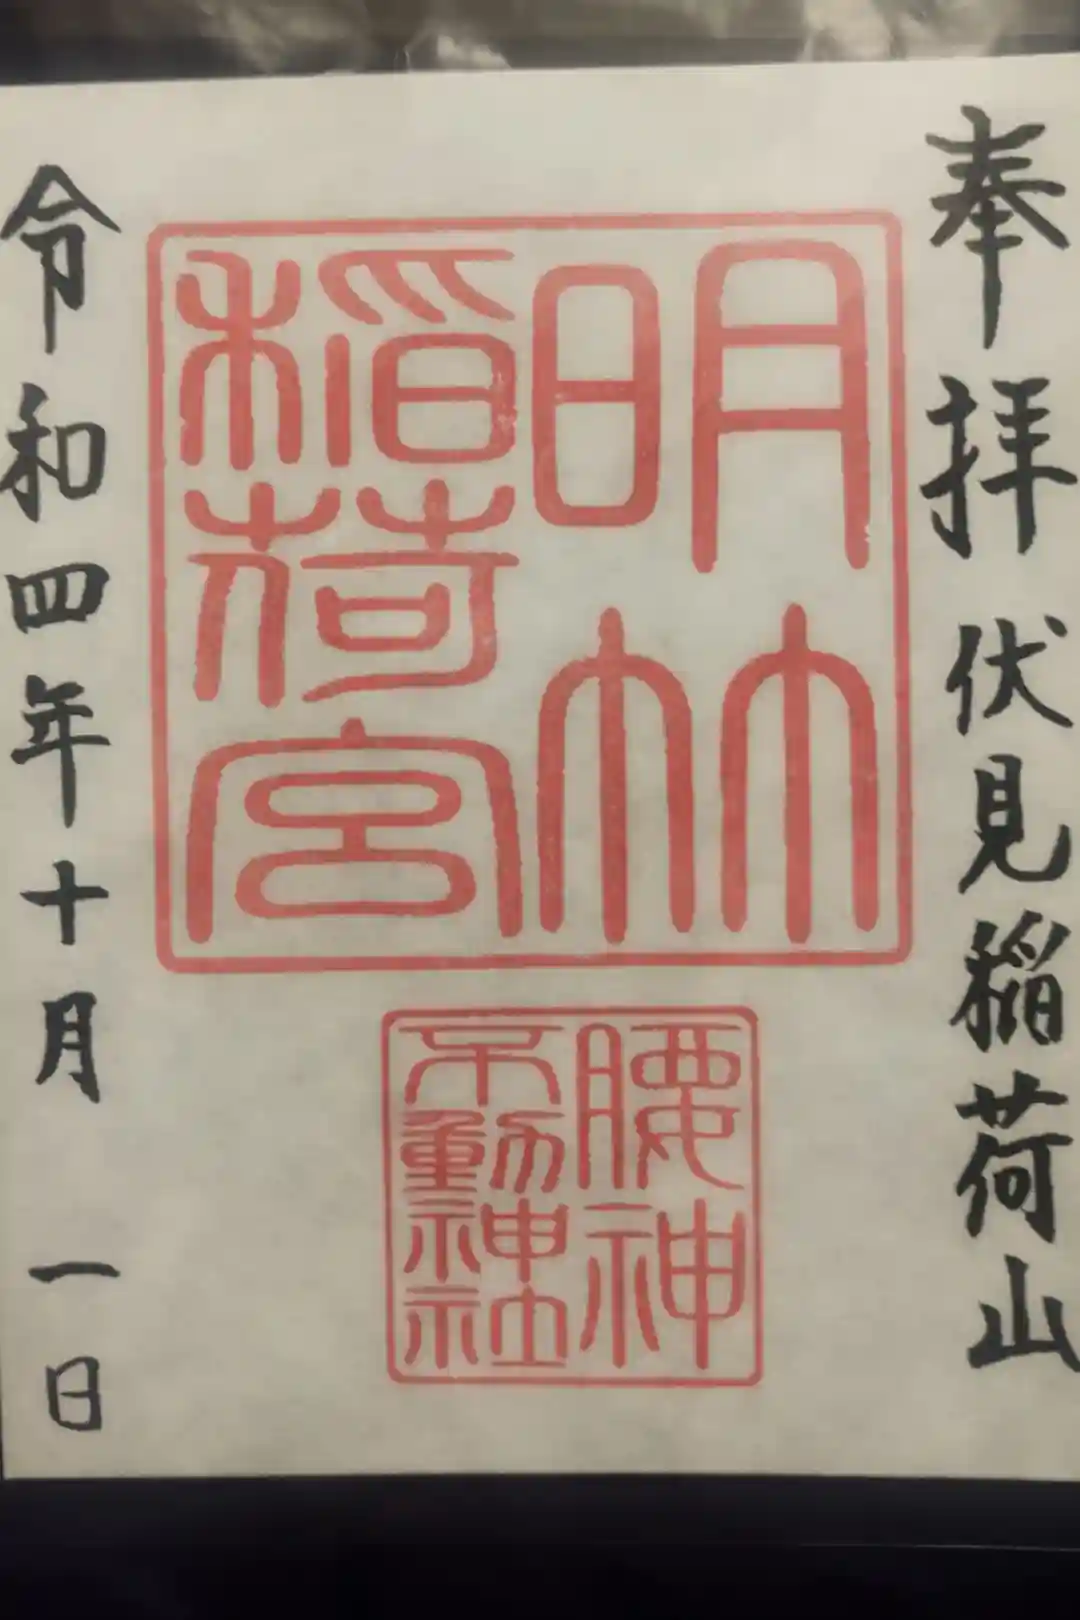 奉拝 伏見稲荷山
明竹
稲荷宮
腰神
不動神社
令和四年十月一日